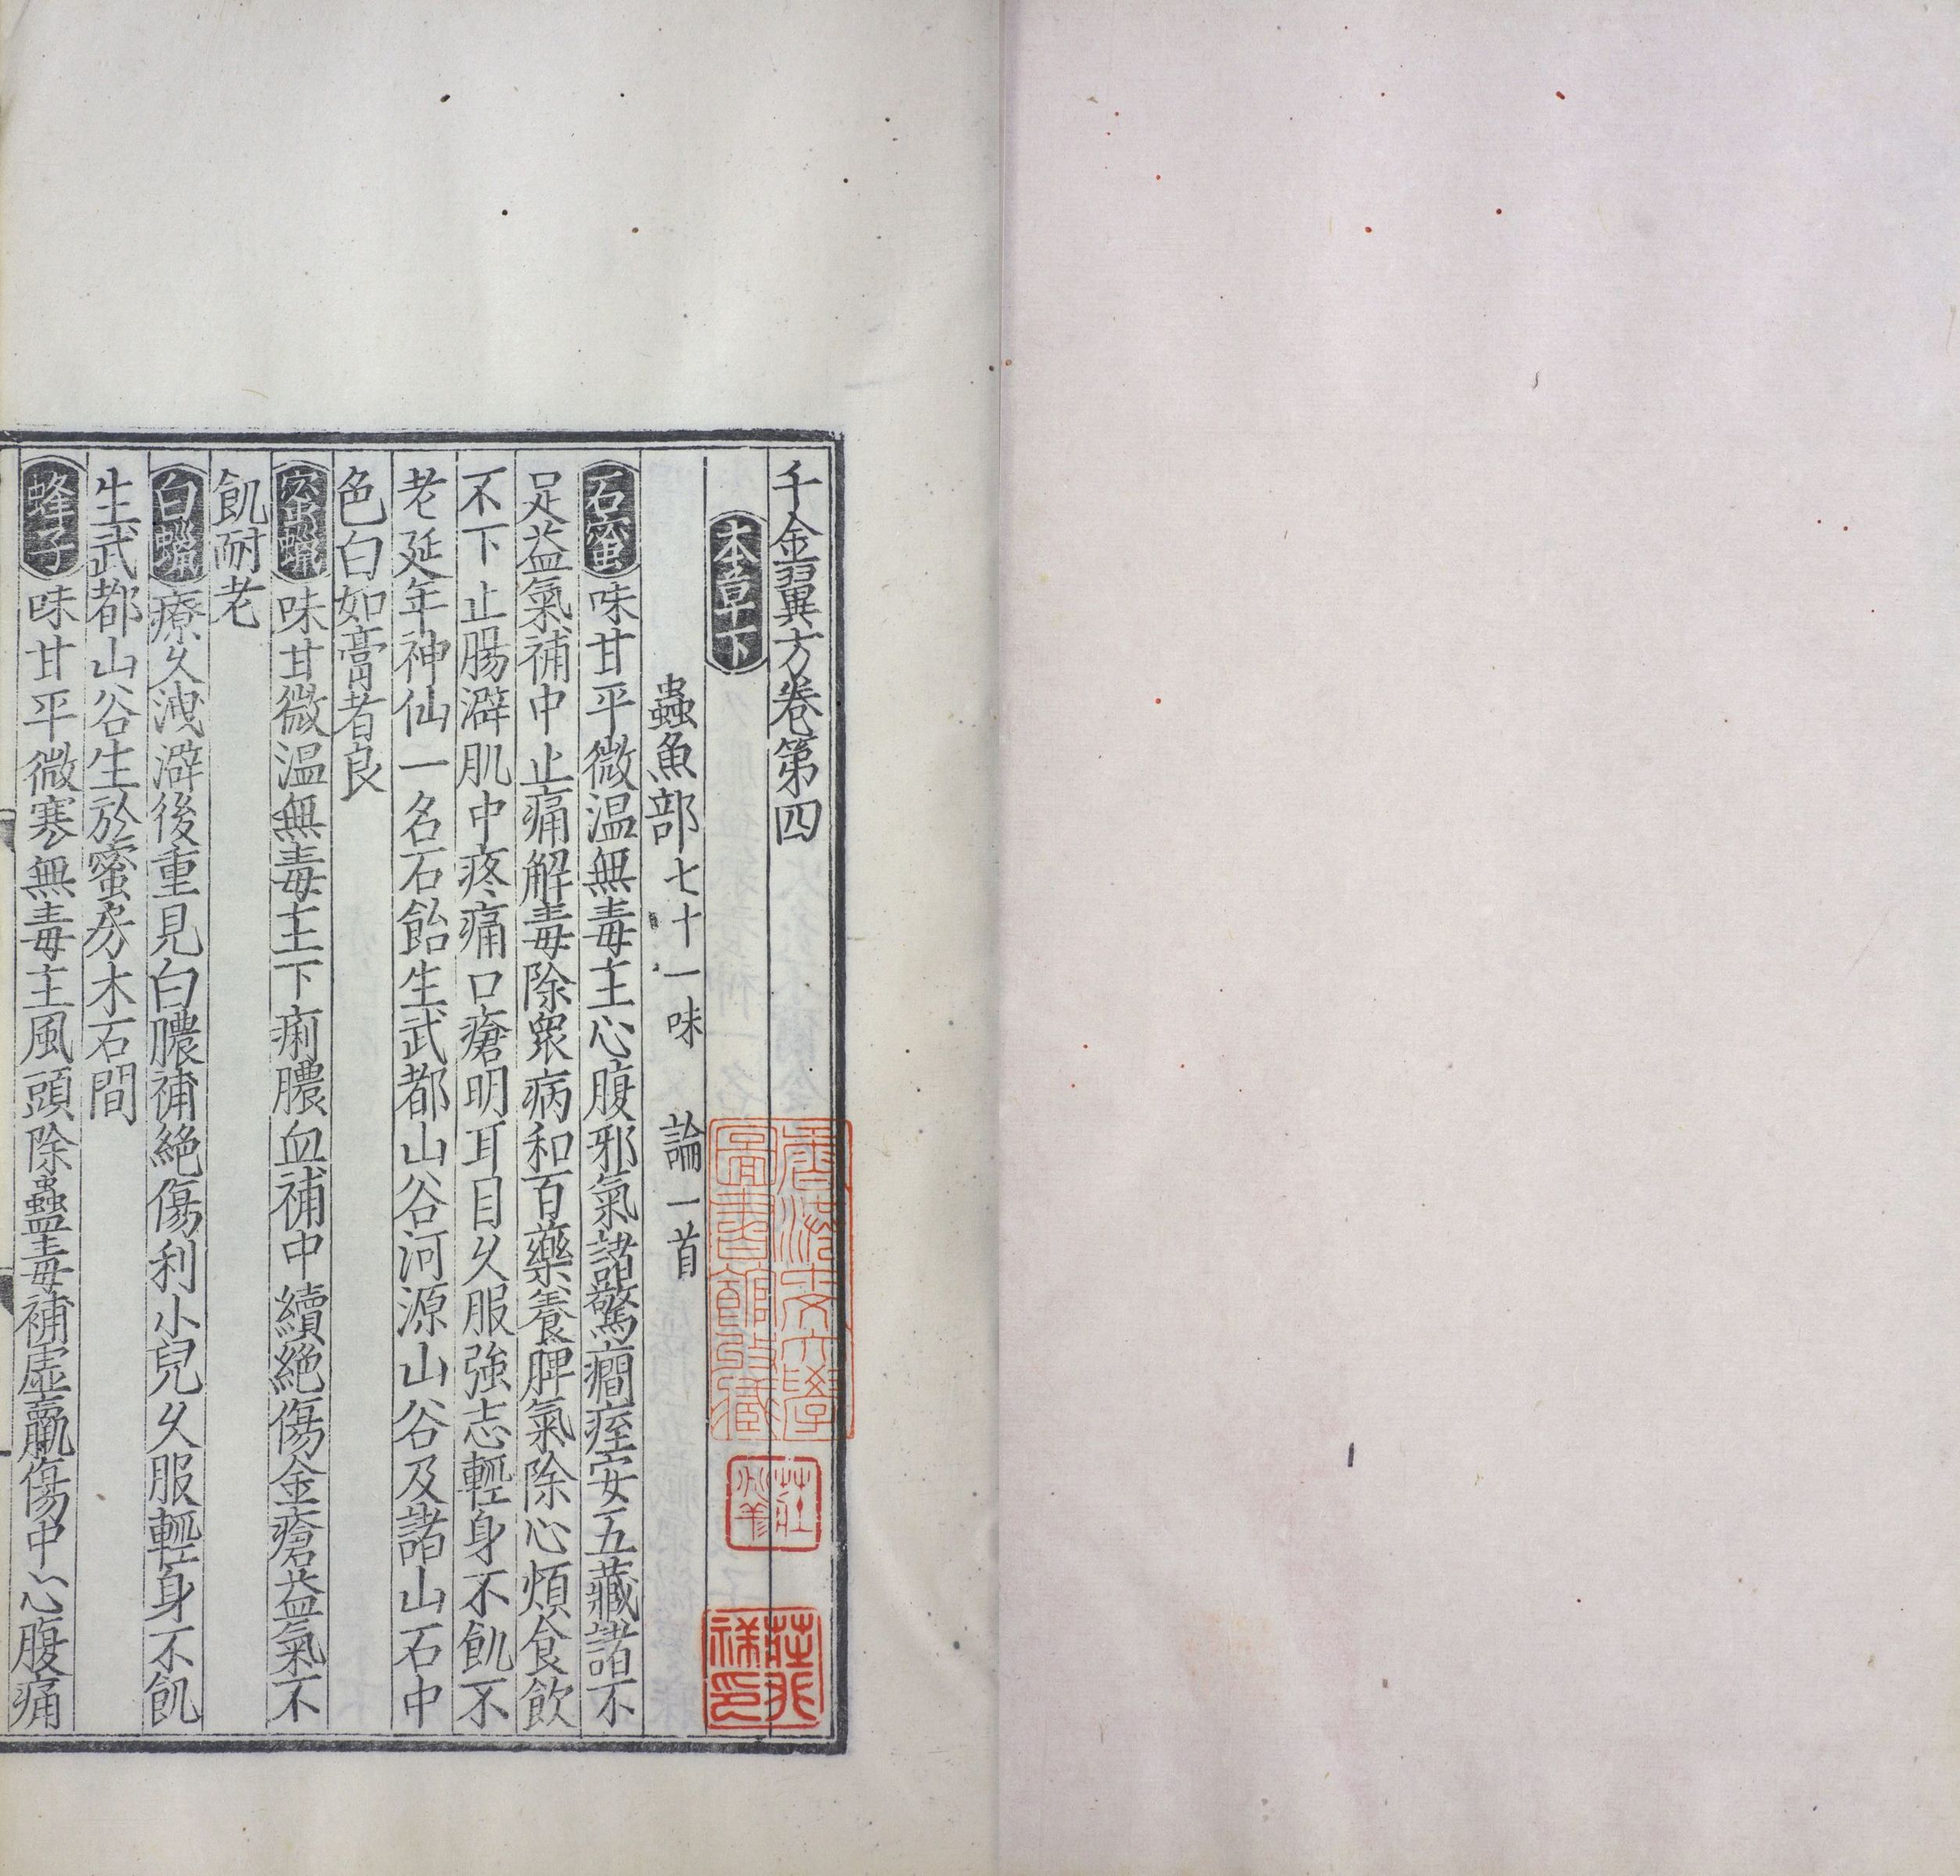 千金翼方卷第四
本草下
蟲魚部七十一味 論一首
石蜜味甘平微温無毒主心腹邪氣諸驚癎痓安五藏諸不
足益氣補中止痛解毒除衆病和百藥養脾氣除心煩食飲
不下止腸澼肌中疼痛口瘡明耳目久服強志輕身不飢不
老延年神仙一名石飴生武都山谷河源山谷及諸山石中
色白如膏者良
蜜蠟味甘微温無毒主下痢膿血補中續絶傷金瘡益氣不
飢耐老
白蠟療久洩澼後重見白膿補絶傷利小兒久服輕身不飢
生武都山谷生於蜜房木石間
蜂子味甘平微寒無毒主風頭除蠱毒補虛羸傷中心腹痛
香港中文大學
圖書館珍藏
莊
莊
印